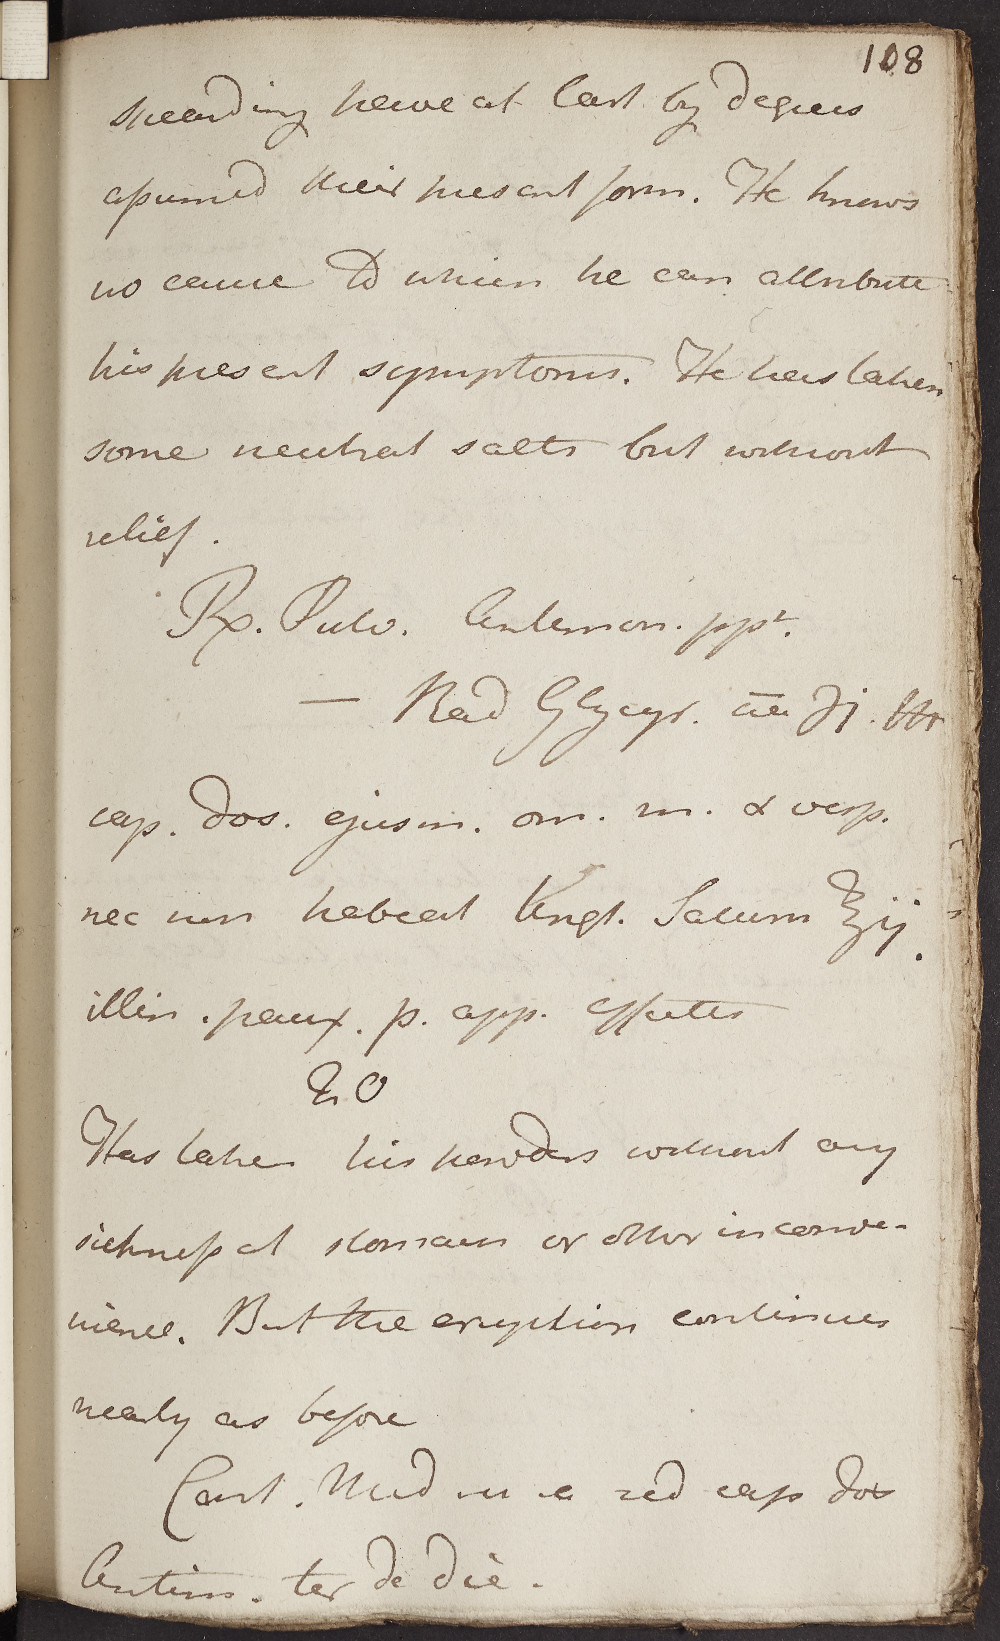 108
spreading have at last by degrees
assumed their present form. He knows
no cause to which he can attribute
his present symptoms. He has taken
some neutral salts but without
relief.
Rx. Pulv. Antemon. ppt.
— Rad Glycyr. aa ʒj. Ht
cap. dos. ejusm. om. m. & vesp.
nec non habeat Ungt. Saturn ℥ij.
illin. paux. p. app. affectis
Has taken his powders without any
sickness at stomach or other inconve-
nience. But the eruption continues
nearly as before
Cont. Med sed cap dos
Antim. ter de die.